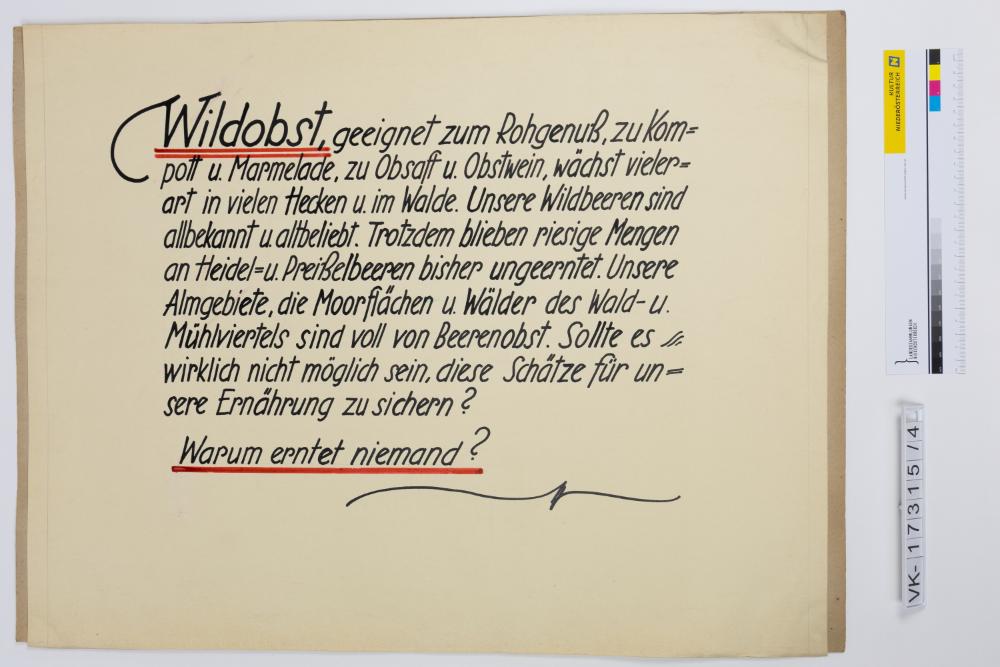 Wildobst, geeignet zum Rohgenuß, zu Kom=
pott u. Marmelade, zu Obsaft u. Obstwein, wächst vieler=
art in vielen Hecken u. im Walde. Unsere Wildbeeren sind
allbekannt u. altbeliebt. Trotzdem blieben riesige Mengen
an Heidel=u. Preißelbeeren bisher ungeerntet. Unsere
Almgebiete, die Moorflächen u. Wälder des Wald- u.
Mühlviertels sind voll von Beerenobst. Sollte es
wirklich nicht möglich sein, diese Schätze für un=
sere Ernährung zu sichern?
Warum erntet niemand?
KULTUR
NIEDERÖSTERREICH
LANDESSAMMLUNGEN
NIEDERÖSTERREICH
VK-17315/4